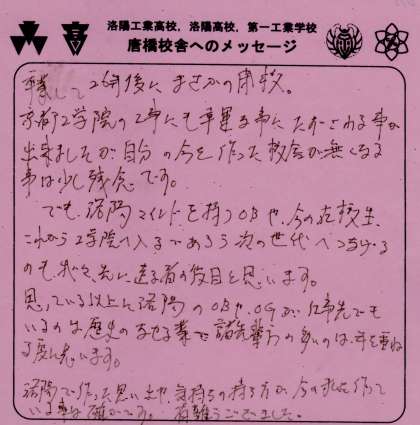 洛陽工業高校，洛陽高校，第一工業学校
唐橋校舎へのメッセージ
卒業して26年後にまさかの閉校。
京都工学院の工事にも幸運な事にたずさわる事が
出来ましたが自分の今を作った校舎が無くなる
事は少し残念です。
でも、洛陽マインドを持つOBや、今の在校生、
これから工学院へ入るであろう次の世代へつなげる
のも、我々、先に達る者の役目と思います。
思っている以上に洛陽のOBや、OGが仕事先でも
いるのは歴史のなせる業で諸先輩方の多いのは、年を重ね
る度に思います。
洛陽で作った思い出や、気持ちの持ち方が今の私を作って
いる事は確かです。有難うございました。